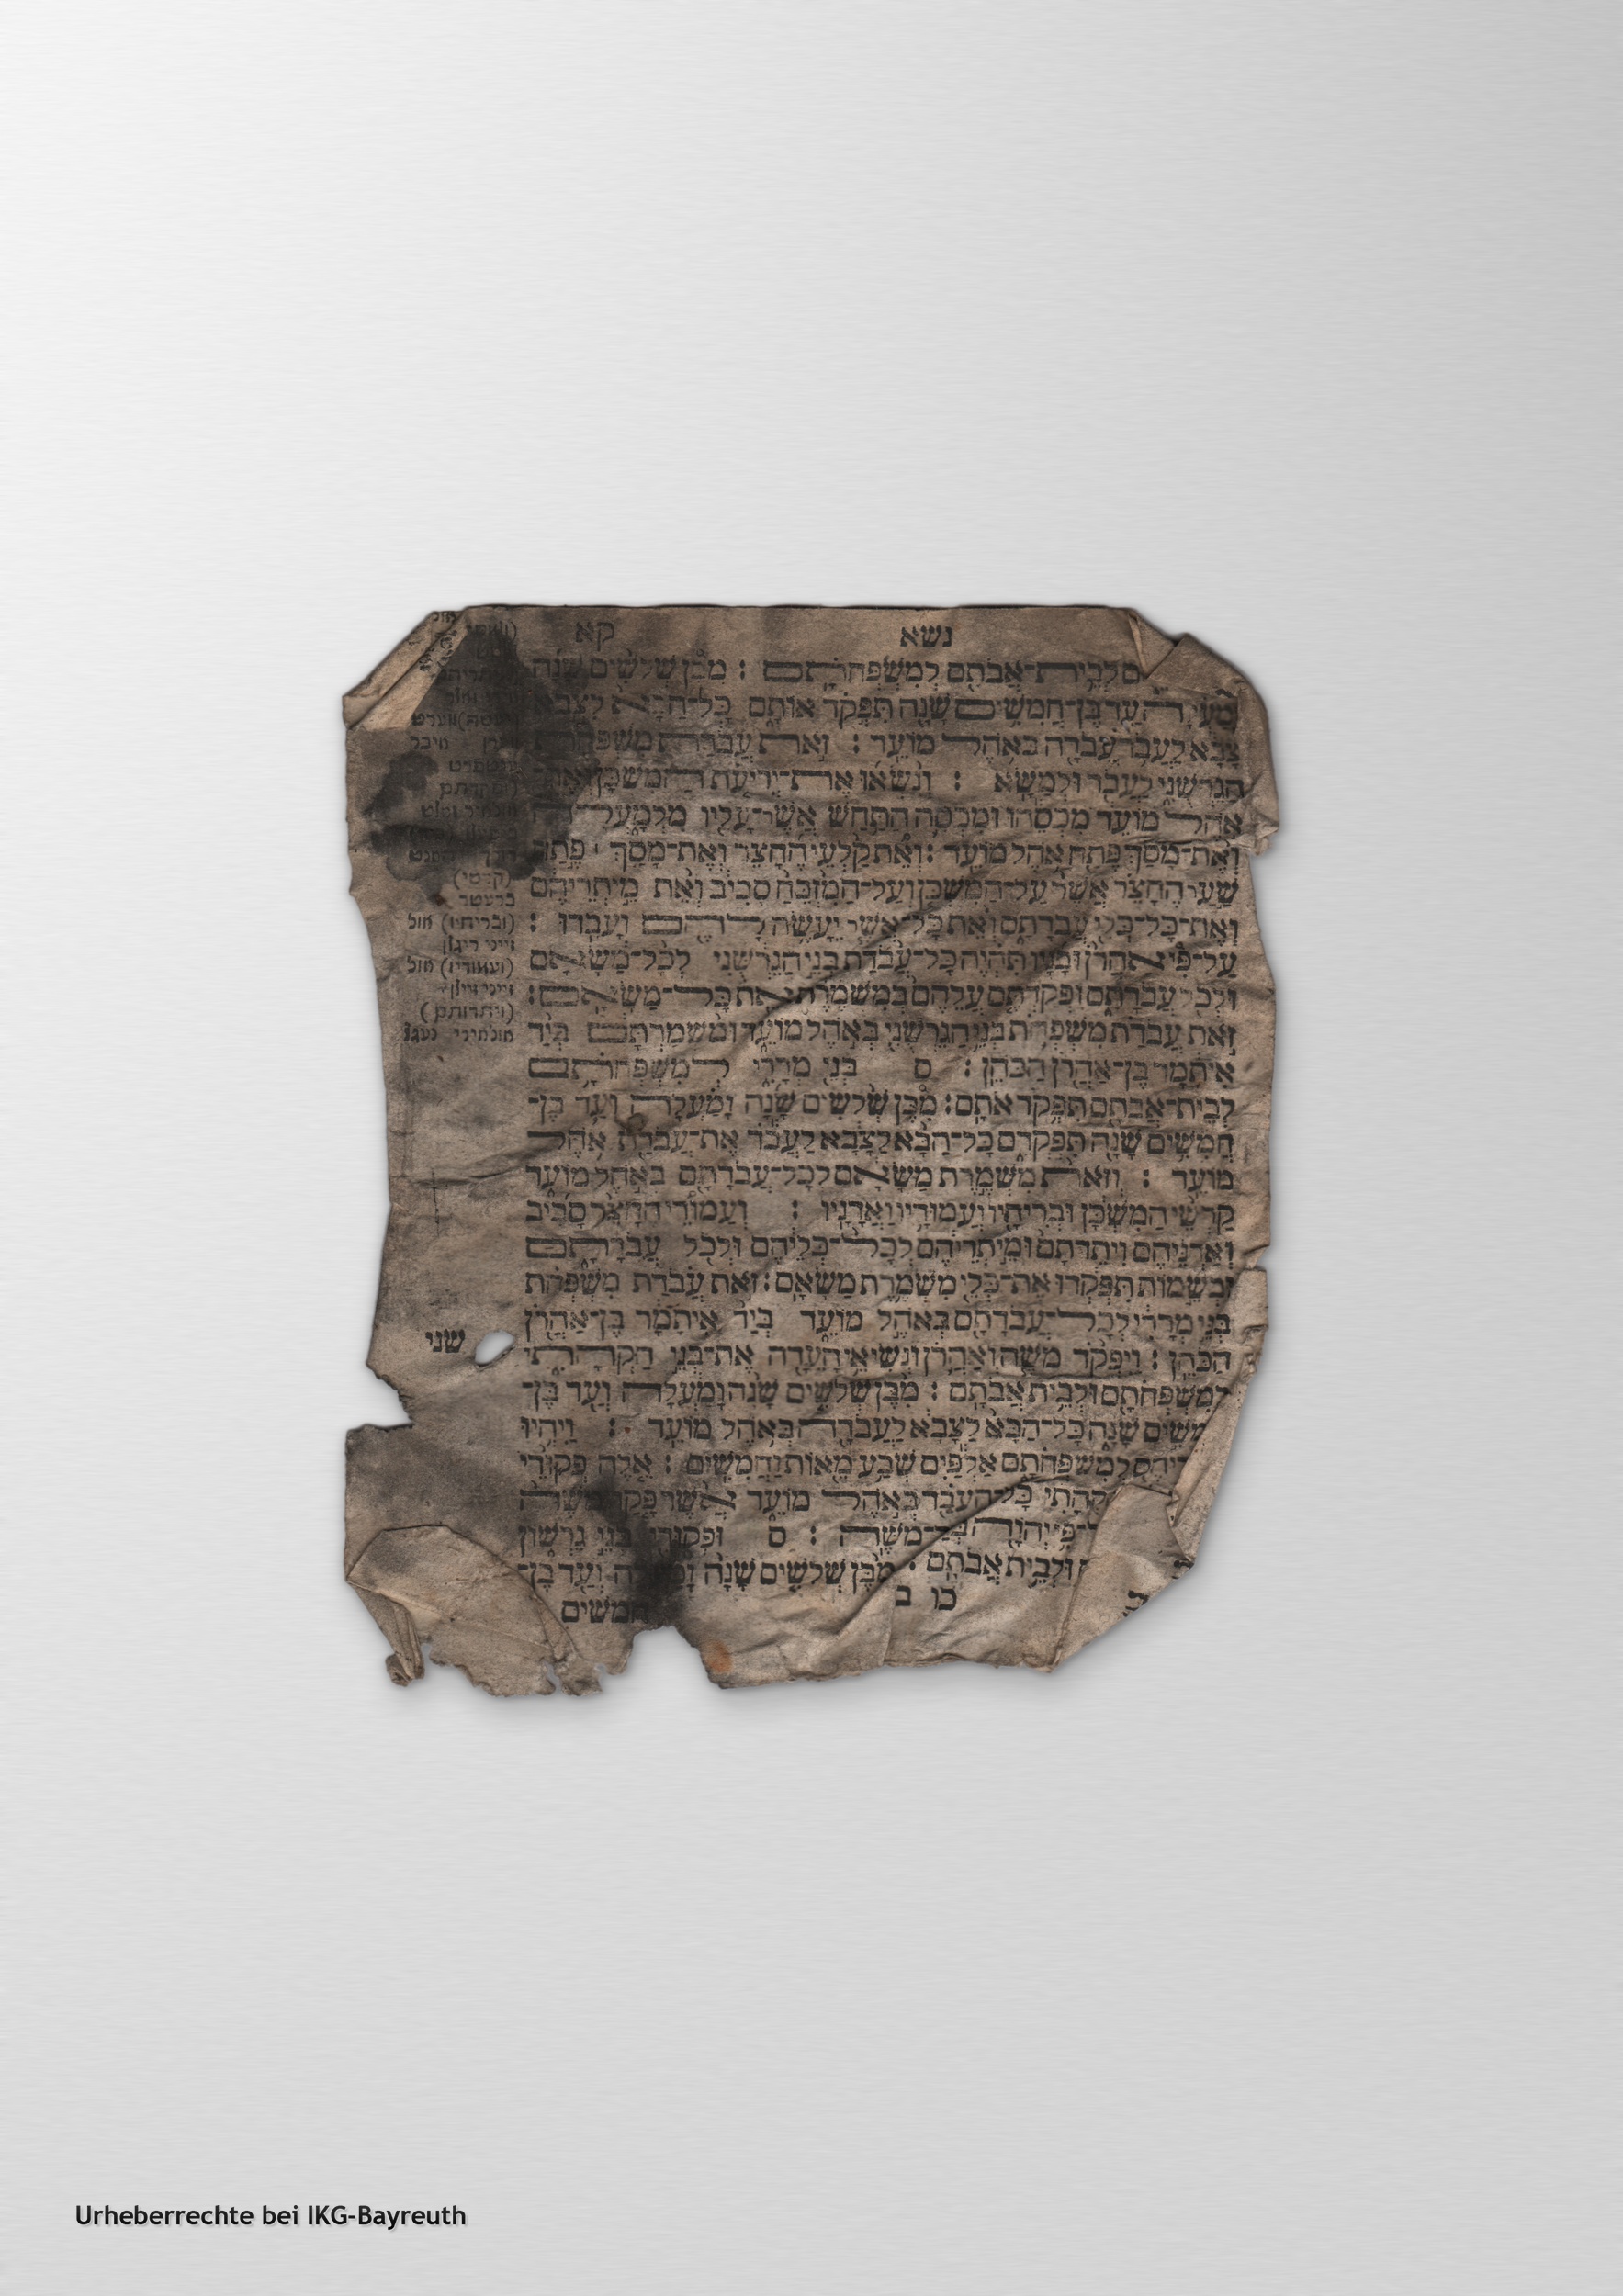 נשא קא
לבית־אבתם למשפחתם : מבן שלשים שנה
ומעלה עד בן־חמשים שנה תפקד אותם כל־הבא לצבא
צבא לעבד עבדה באהל מועד : זאת עבדת משפחת
הגרשני לעבד ולמשא : ונשאו את־יריעת המשכן ואת־
אהל מועד מכסהו ומכסה התחש אשר־עליו מלמעלה
ואת־מסך פתח אהל מועד : ואת קלעי החצר ואת־מסך פתח
שער החצר אשר על־המשכן ועל־המזבח סביב ואת מיתריהם
ואת־כל־כלי עבדתם ואת כל־אשר יעשה להם ועבדו :
על־פי אהרן ובניו תהיה כל־עבדת בני הגרשני לכל־משאם
ולכל עבדתם ופקדתם עלהם במשמרת את כל־משאם :
זאת עבדת משפחת בני הגרשני באהל מועד ומשמרתם ביד
איתמר בן־אהרן הכהן : ס בני מררי למשפחתם
לבית־אבתם תפקד אתם : מבן שלשים שנה ומעלה ועד בן־
חמשים שנה תפקדם כל־הבא לצבא לעבד את־עבדת אהל
מועד : וזאת משמרת משאם לכל־עבדתם באהל מועד
קרשי המשכן ובריחיו ועמודיו ואדניו : ועמודי החצר סביב
ואדניהם ויתדתם ומיתריהם לכל־כליהם ולכל עבדתם
ובשמות תפקדו את־כלי משמרת משאם : זאת עבדת משפחת
בני מררי לכל־עבדתם באהל מועד ביד איתמר בן־אהרן
הכהן : ויפקד משה ואהרן ונשיאי העדה את־בני הקהתי
למשפחתם ולבית אבתם : מבן שלשים שנה ומעלה ועד בן־
חמשים שנה כל־הבא לצבא לעבדה באהל מועד : ויהיו
למשפחתם אלפים שבע מאות וחמשים : אלה פקודי
הקהתי כל־העבד באהל מועד אשר פקד משה
פי יהוה ביד־משה : ס ופקודי בני גרשון
ולבית אבתם : מבן שלשים שנה ומעלה ועד בן־
כו ב חמשים
(קרשי)
(ובריחיו)
(ועמודיו)
(ויתדותם)
שני
Urheberrechte bei IKG-Bayreuth